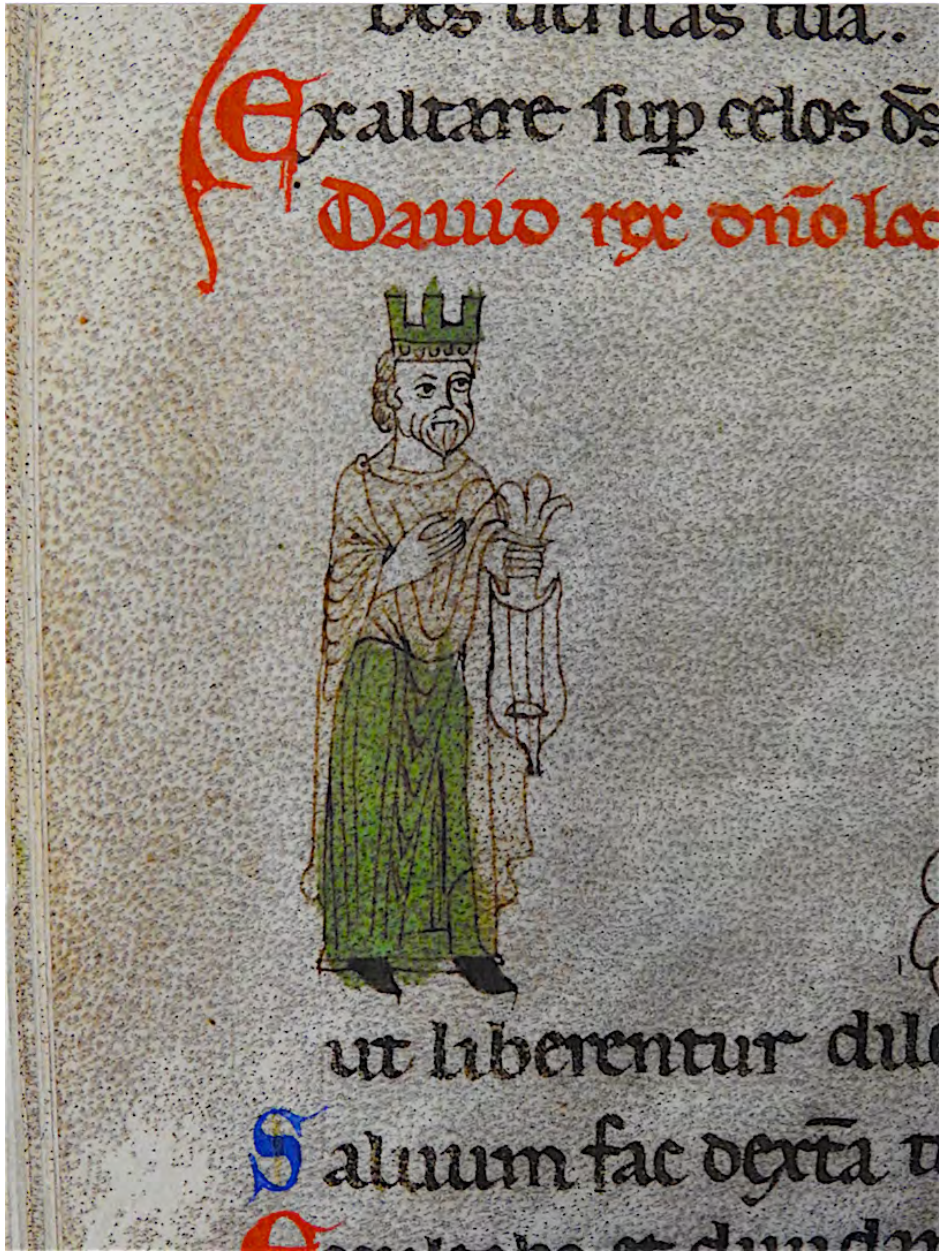 bes ueritas tua.
Exaltare sup̄ celos d̄s
Dauid rex dn̄o loq
ut liberentur dile
Saluum fac dext̄a t